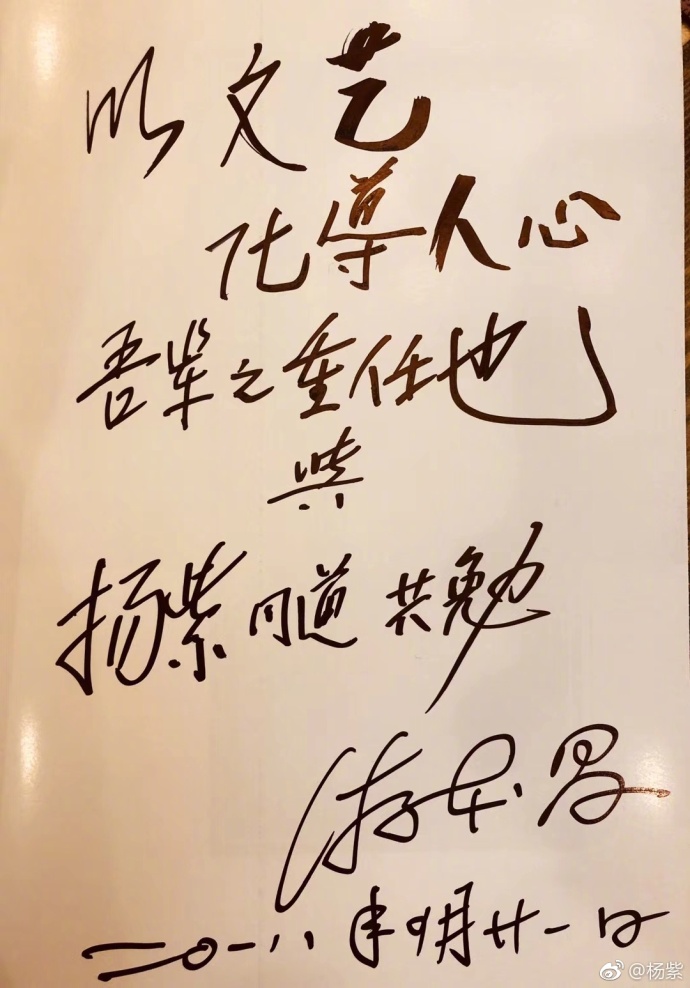 以文艺
化导人心
吾辈之重任也
与
杨紫同道共勉
游本昌
二〇一八年九月廿一日
@杨紫